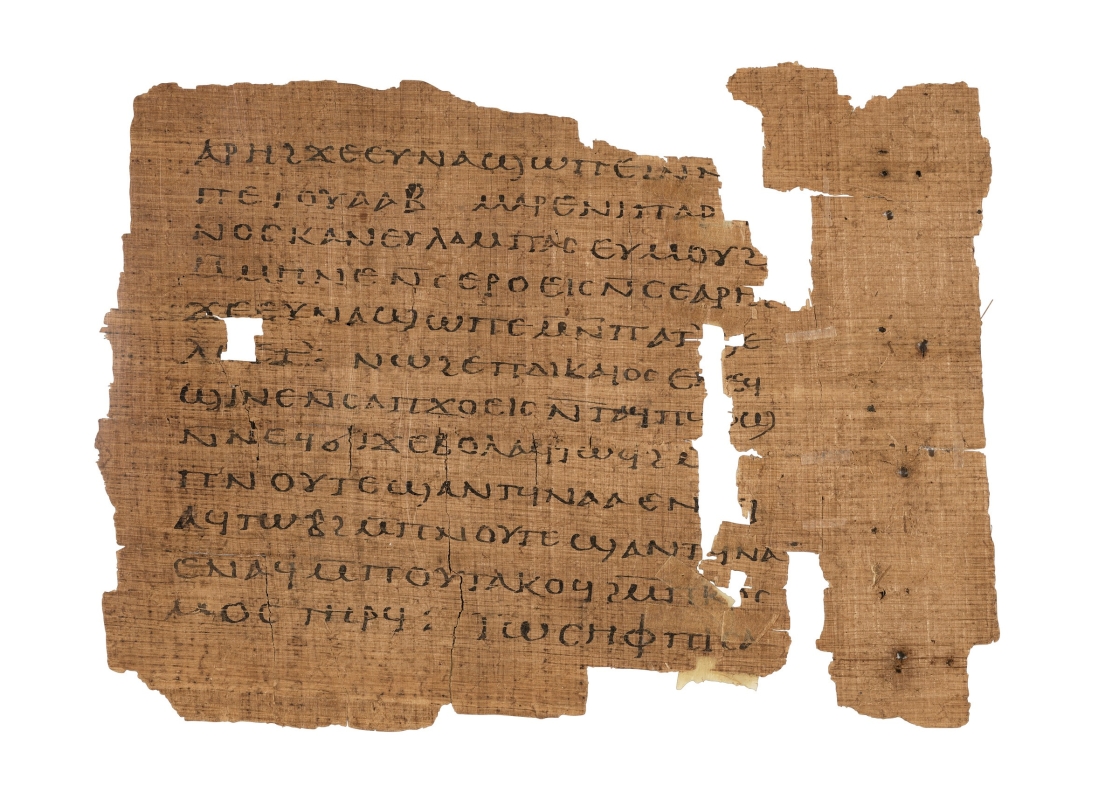 ⲁⲣⲏϩϫⲉⲉⲩⲛⲁϣⲱⲡⲉ
ⲡⲉⲧⲟⲩⲁⲁⲃ ⲙⲁⲣⲉⲛⲓⲡⲁⲣ
ⲛⲟⲥⲕⲁⲛⲉⲩⲗⲁⲙⲡⲁⲥⲉⲩⲙⲟⲩϩ
ⲙⲏⲛⲉⲛ̅ⲥⲉⲣⲟⲉⲓⲥⲛ̅ⲥⲉⲁⲣⲏϩ
ϫⲉⲉⲩⲛⲁϣⲱⲡⲉⲙⲛ̅ⲡⲁⲧ ⲉ
ⲗ ⲛⲱϩⲉⲡⲇⲓⲕⲁⲓⲟⲥ
ϣⲓⲛⲉⲛ̅ⲥⲁⲡϫⲟⲉⲓⲥⲛ̅ⲧⲁϥⲡ ϣ
ⲛ̅ⲛⲉϥϭⲓϫⲉⲃⲟⲗⲁϥⲧⲱϥϩ
ⲡⲛⲟⲩⲧⲉϣⲁⲛⲧϥⲛⲁⲁⲉⲛ
ⲁϥⲧⲱⲃϩⲙ̅ⲡⲛⲟⲩⲧⲉϣⲁⲛⲧϥⲛⲁ
ⲉⲛⲁϥⲙ̅ⲡⲟⲩⲧⲁⲕⲟϥϩⲙ̅ⲡⲕⲟⲥ
ⲙⲟⲥⲧⲏⲣϥ: ⲓ̈ⲱⲥⲏⲫⲡⲓⲥⲁ